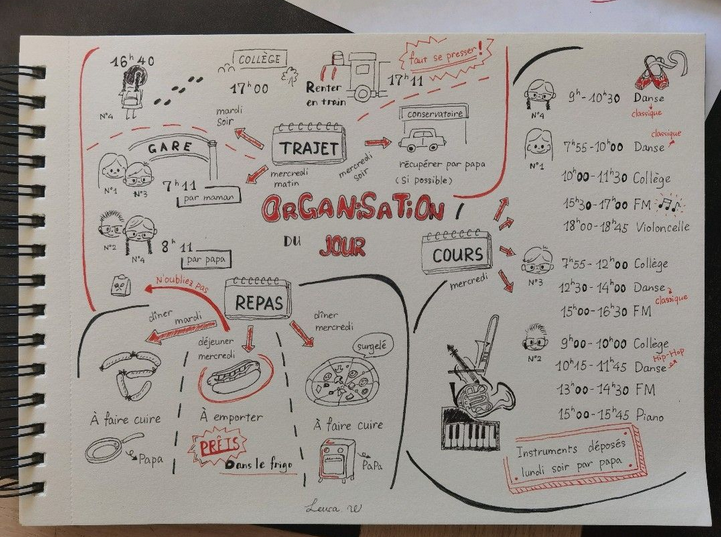 16h40
N°4
COLLÈGE
17h00
Renter
en train
17h11
faut se presser!
mardi
soir
TRAJET
conservatoire
récupérer par papa
(si possible)
mercredi
soir
mercredi
matin
GARE
N°1
N°3
7h11
par maman
N°2
N°4
8h11
par papa
ORGANISATION
DU
JOUR
N'oubliez pas
REPAS
dîner mardi
À faire cuire
Papa
déjeuner
mercredi
À emporter
PRÊTS
Dans le frigo
dîner
mercredi
surgelé
À faire cuire
PaPa
COURS
mercredi
N°4
9h-10h30 Danse
classique
N°1
classique
7h55-10h00 Danse
10h00-11h30 Collège
15h30-17h00 FM
18h00-18h45 Violoncelle
N°3
7h55-12h00 Collège
12h30-14h00 Danse
classique
15h00-16h30 FM
N°2
9h00-10h00 Collège
Hip-Hop
10h15-11h45 Danse
13h00-14h30 FM
15h00-15h45 Piano
Instruments déposés
lundi soir par papa